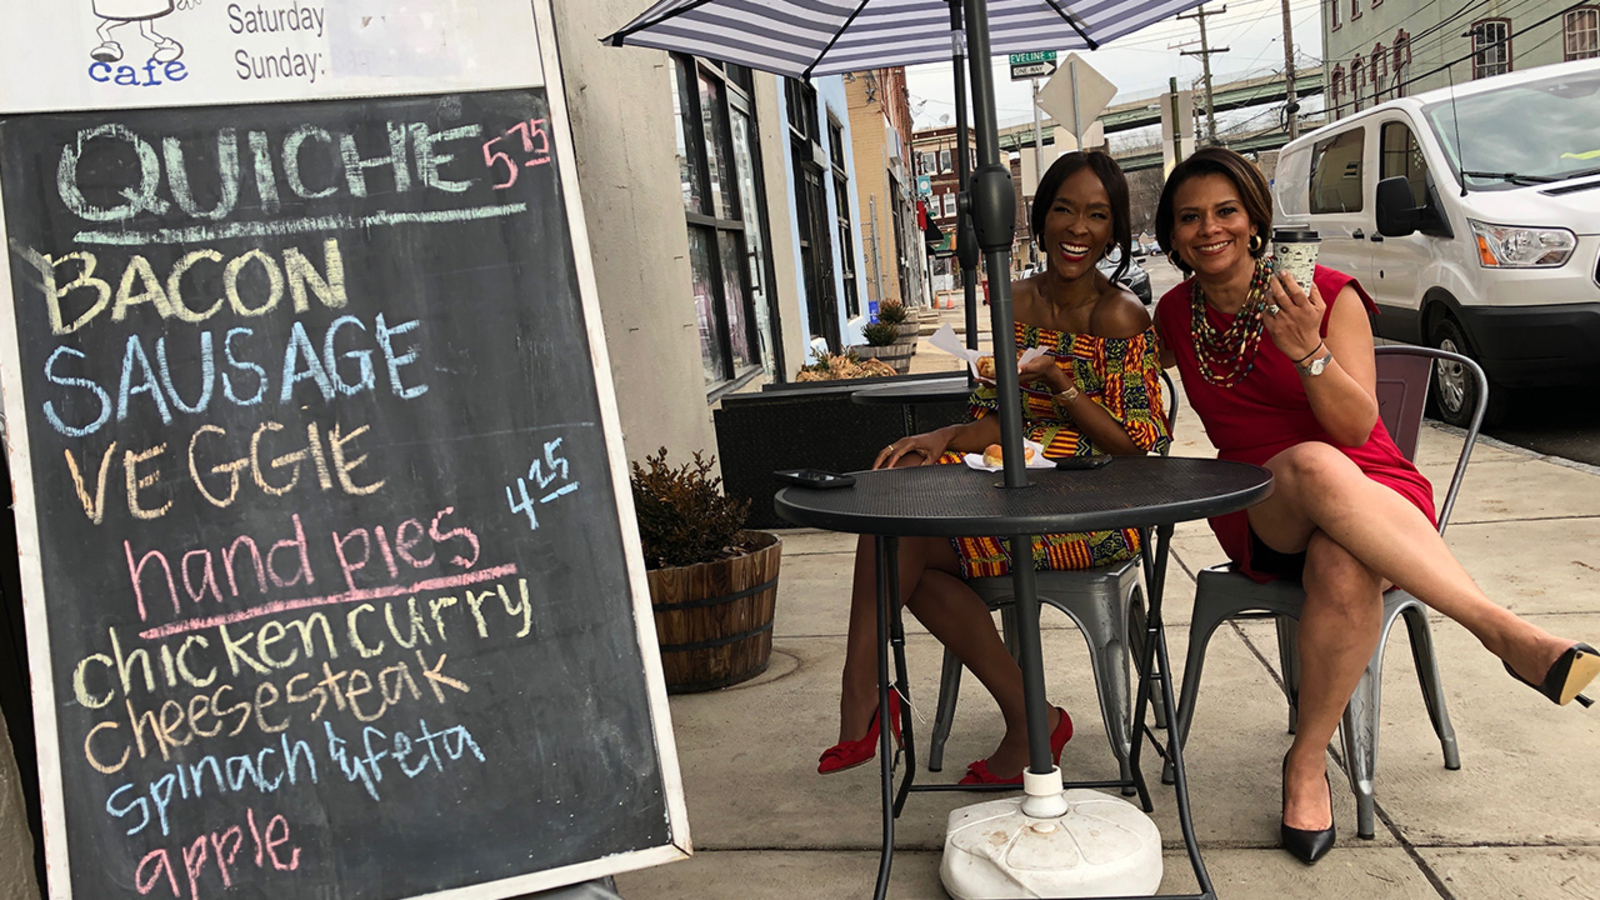 Saturday
Sunday:
cafe
QUICHE 5.75
BACON
SAUSAGE
VEGGIE
hand pies 4.25
chicken curry
cheesesteak
spinach & feta
apple
EVELINE ST
ONE WAY